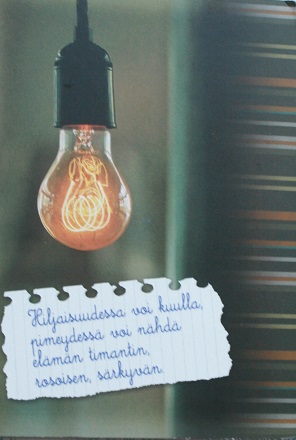 Hiljaisuudessa voi kuulla,
pimeydessä voi nähdä
elämän timantin,
rosoisen, särkyvän.